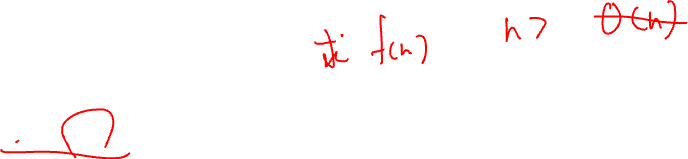 求 f(n) n> O(n)